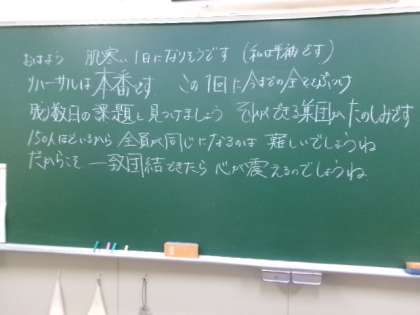 おはよう 肌寒い1日になりそうです (私は半袖です)
リハーサルは本番です この1回に今までの全てをぶつけ
残数日の課題を見つけましょう それができる集団がたのしみです
150人ほどいるから 全員が同じになるのは 難しいでしょうね
だからこそ 一致団結できたら 心が震えるのでしょうね